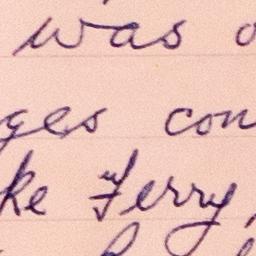 was o
ges con
ke Ferry,